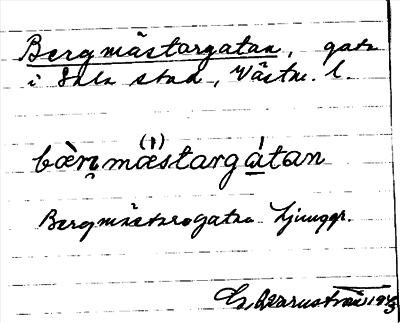 Bergmästargatan, gata
i Sala stad, Västm. l.
(1)
bæ̀rn̥mæstargátan
Bergmästaregatan Ljunggr.